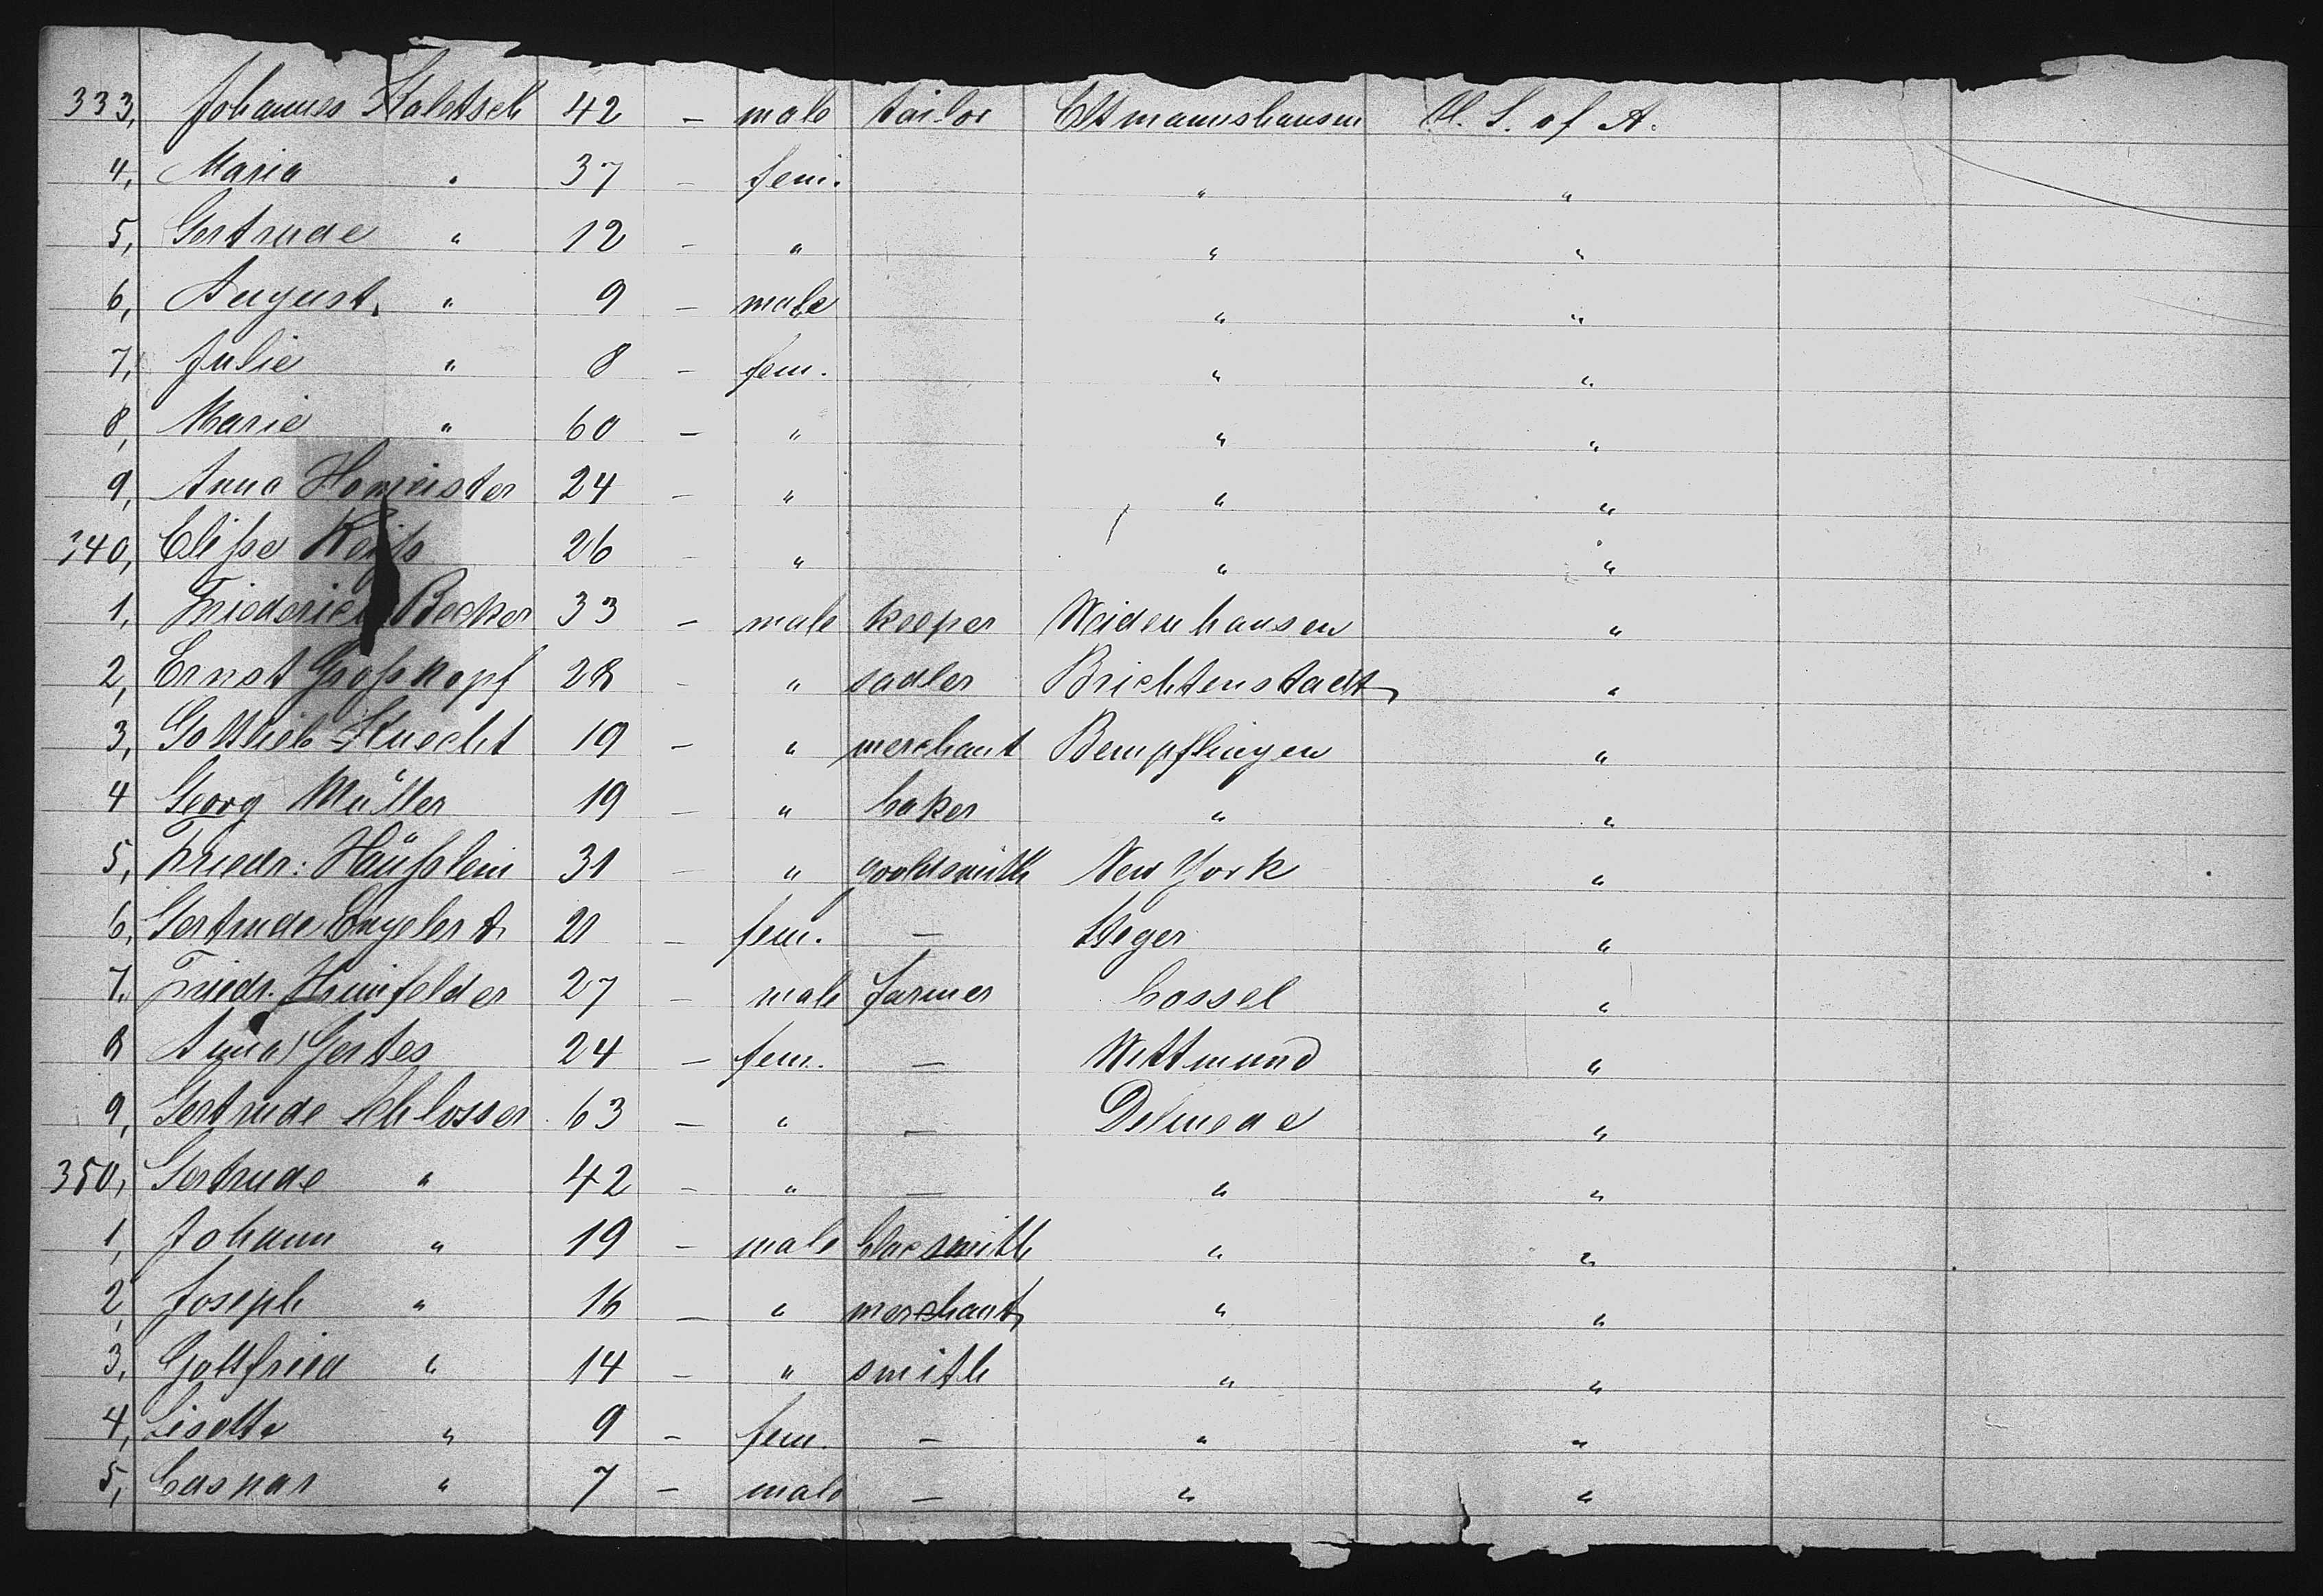 333, Johannes Kaletsch 42 - male tailor Eltmannshausen U. S. of A.
4, Maria " 37 - fem. " "
5, Gertrude " 12 - " " "
6, August " 9 - male " "
7, Julie " 8 - fem. " "
8, Marie " 60 - " " "
9, Anna Homeister 24 - " " "
340, Eliße 26 - " " "
1, Friederich Becker 33 - male keeper Weidenhausen "
2, Ernst Großkopf 28 - " sadler Brichtenstadt "
3, Gottlieb Knecht 19 - " merchant Bempflingen "
4 Georg Müller 19 - " baker " "
5, Friedr: Häußlein 31 - " gooldsmith New York "
6, Gertrude Engelert 21 - fem. - Steger "
7, Friedr. Heinfelder 27 - male farmer Cassel "
8 Anna Gerdes 24 - fem. - Wittmund "
9, Gertrude Schlosser 63 - " - Delmede "
350, Gertrude " 42 - " - " "
1, Johann " 19 - male blacsmith " "
2, Joseph " 16 - " merchant " "
3, Gottfried " 14 - " smith " "
4, Lisette " 9 - fem. - " "
5, Caspar " 7 - male - " "